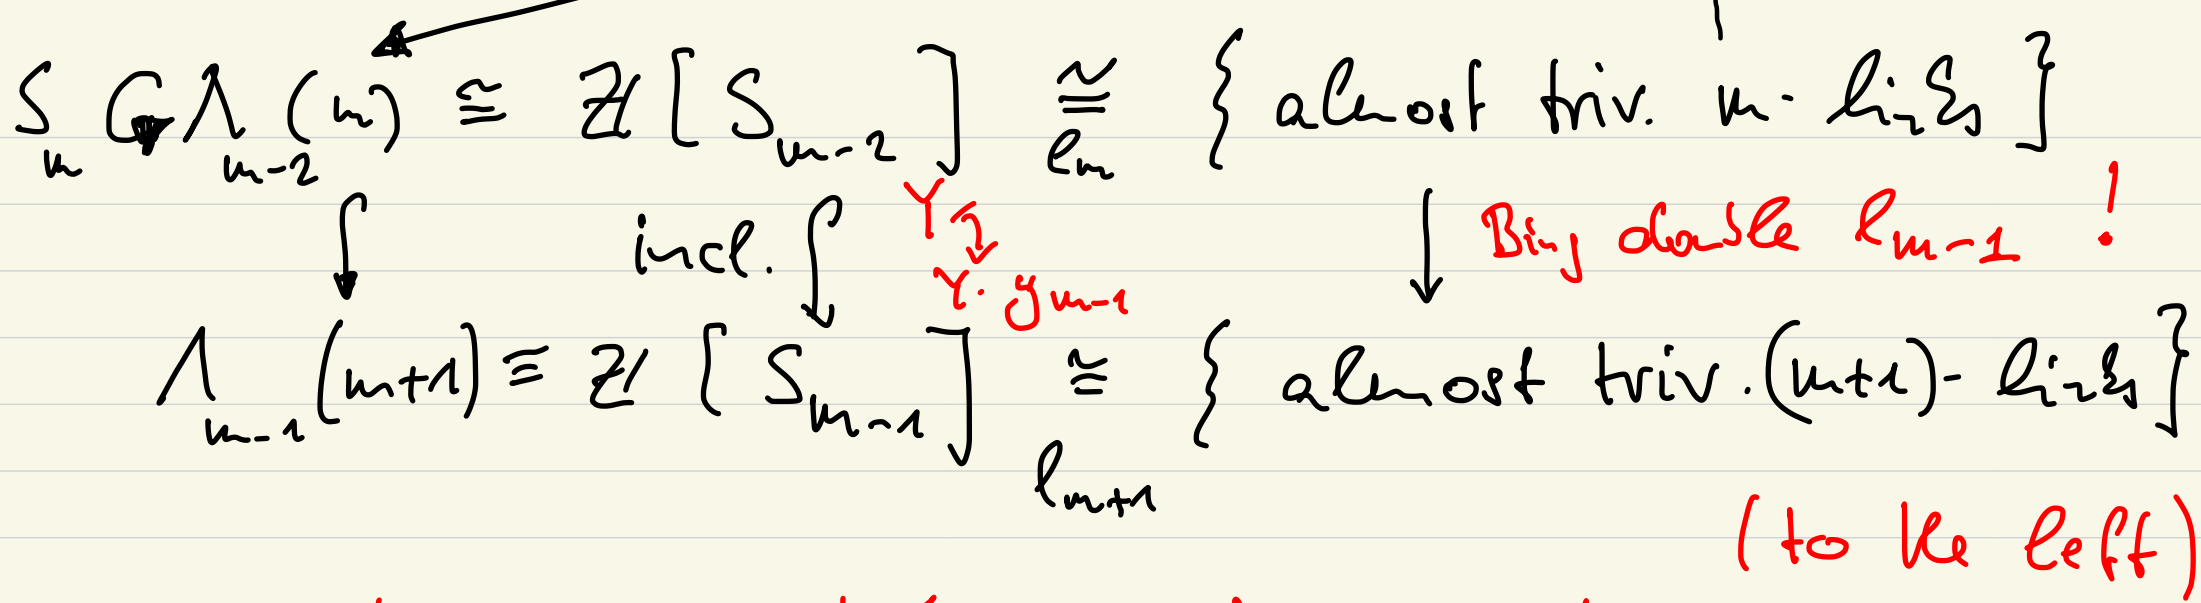 S_m ↻ Λ_{m-2}(m) ≅ ℤ[S_{m-2}] ≅_{ℓ_m} { almost triv. m-links }
↓ incl. ↓ Y ↦ Y·y_{m-1} ↓ Bing double ℓ_{m-1} !
Λ_{m-1}(m+1) ≅ ℤ[S_{m-1}] ≅_{ℓ_{m+1}} { almost triv. (m+1)-links }
(to the left)